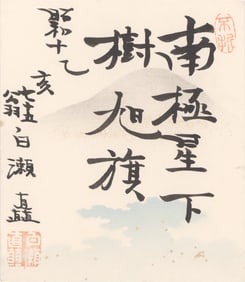 南極星下
樹旭旗
昭和十乙
亥
翁白瀬矗